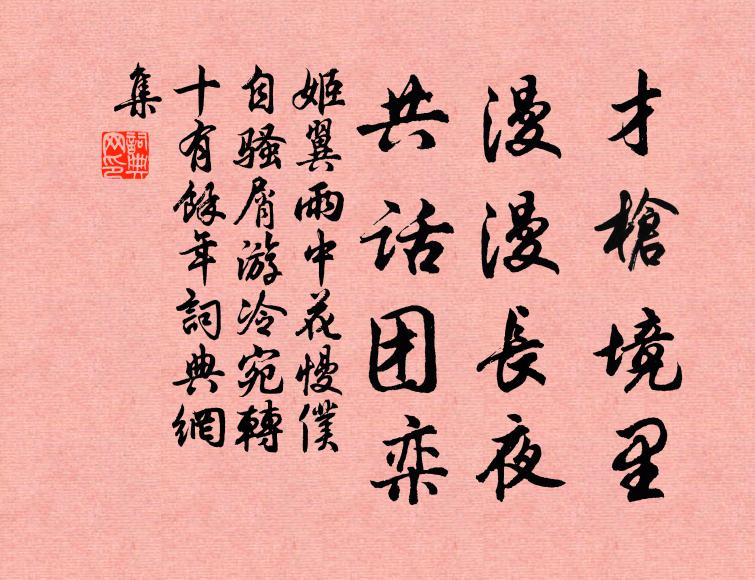 才槍境里
漫漫長夜
共话团栾
姬翼雨中花慢僕
自骚屑游冷宛轉
十有餘年詞典網
集
詞典網印